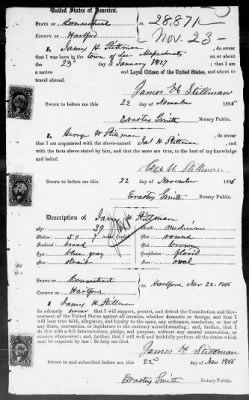 United States of America.
STATE OF Connecticut
COUNTY OF Hartford
28871
Nov. 23
I James H Stillman, do swear
that I was born in the town of Lee Massachusetts on or about the
23d of January 1827 that I am
a native and Loyal Citizen of the United States, and about to
travel abroad.
James H. Stillman
Sworn to before me this 22 day of November 1866
Erastus Smith Notary Public.
I George H Stillman, do swear
that I am acquainted with the above-named Jas H Stillman, and with
the facts above stated by him, and that the same are true, to the best of my knowledge
and belief.
Geo H Stillman
Sworn to before me this 22 day of November 1866
Erastus Smith Notary Public.
Description of James H Stillman
Age: 39
medium
round
brown
blue gray
florid
oval
STATE OF Connecticut
COUNTY OF Hartford
Hartford Nov 22. 1866
I James H Stillman
do solemnly swear that I will support, protect, and defend the Constitution and Government
of the United States against all enemies, whether domestic or foreign, and that I
will bear true faith, allegiance, and loyalty to the same, any ordinance, resolution, or law
of any State, convention, or legislature to the contrary notwithstanding; and further, that I
do this with a full determination, pledge, and purpose, without any mental reservation or
evasion whatsoever; and further, that I will well and faithfully perform all the duties which
may be required by law: So help me God.
James H Stillman
Sworn to and subscribed before me, this 22d day of Nov 1866
Erastus Smith
Notary Public.